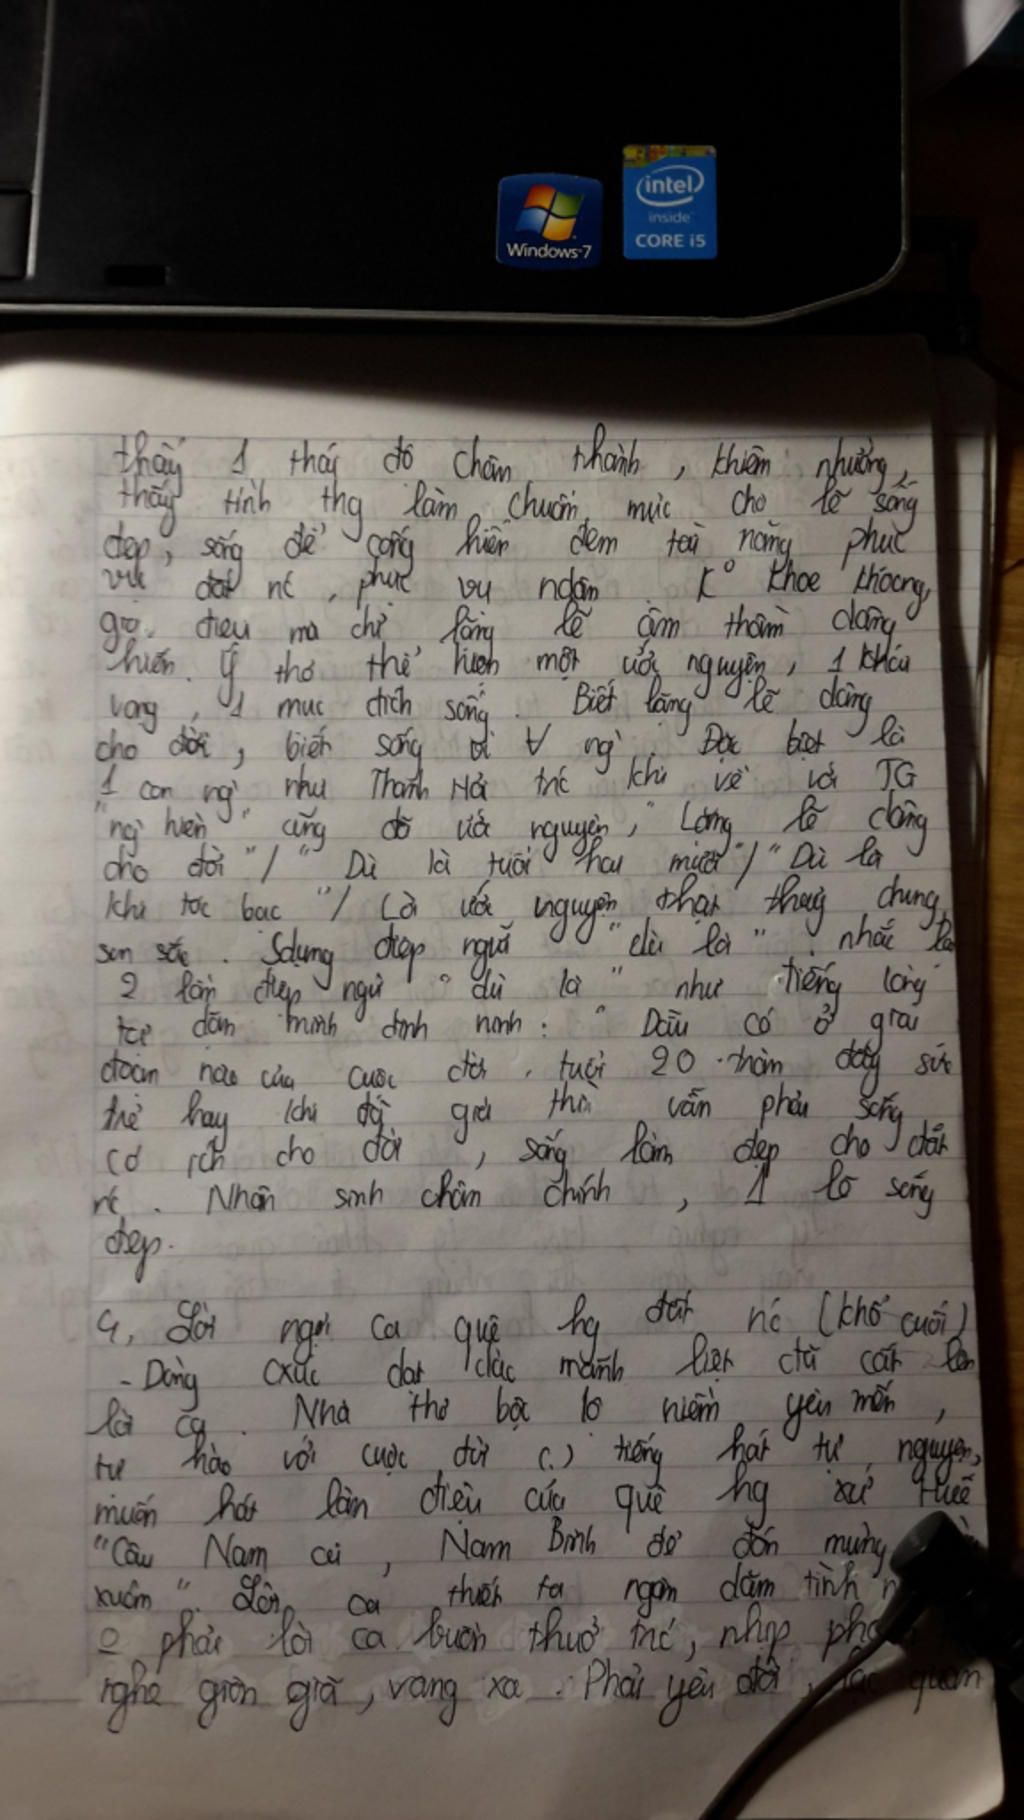 Windows 7
intel
inside
CORE i5
thấy 1 thái độ chân thành, khiêm nhường,
thấy tình thg làm chuẩn mực cho lẽ sống
đẹp, sống để cống hiến đem tài năng phục
vụ đất nc, phục vụ ndân. K° khoe khoang,
giò điệu mà chỉ lặng lẽ âm thầm dâng
hiến. Ý thơ thể hiện một ước nguyện, 1 khát
vọng, 1 mục đích sống. Biết lặng lẽ dâng
cho đời, biết sống vì ∀ ng`. Đặc biệt là
1 con ng` như Thanh Hải trc khi về với TG
"ng` hiền" cũng đã ước nguyện, "Lặng lẽ dâng
cho đời"/ "Dù là tuổi hai mươi"/ "Dù là
khi tóc bạc"/ Lời ước nguyện thật thuỷ chung
son sắc. Sdụng điệp ngữ "dù là". nhắc lại
2 lần điệp ngữ "dù là" như tiếng lòng
tự dặn mình đinh ninh: "Dẫu có ở giai
đoạn nào của cuộc đời, tuổi 20 tràn đầy sức
trẻ hay khi đã già thì vẫn phải sống
có ích cho đời, sống làm đẹp cho đất
nc. Nhân sinh chân chính, 1 lẽ sống
đẹp.
4, Lời ngợi ca quê hg đất nc (khổ cuối)
- Dòng cxúc dạt dào mãnh liệt đã cất lên
lời ca. Nhà thơ bộc lộ niềm yêu mến,
tự hào với cuộc đời (.) tiếng hát tự nguyện,
muốn hát làn điệu của quê hg xứ Huế
"Câu Nam ai, Nam Bình để đón mừng
xuân". Lời ca thiết tha ngân dăm tình
phải lời ca buồn thuở trc, nhịp
nghe giòn giã, vang xa. Phải yêu đời, lạc quan